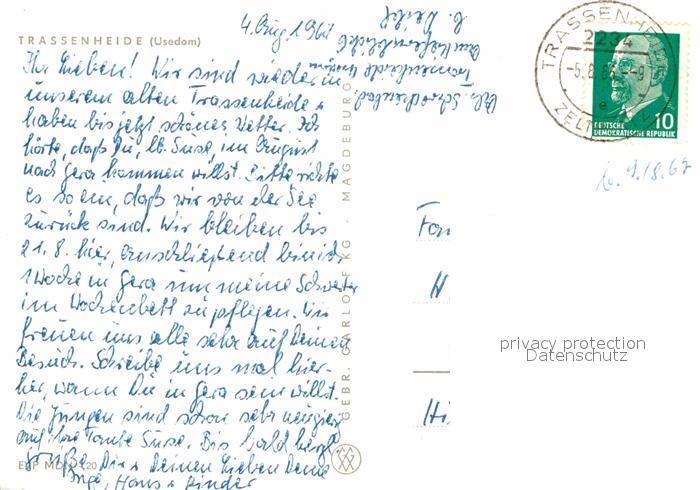 4. Aug. 1967
TRASSENHEIDE (Usedom)
Ihr Lieben! Wir sind wieder in
unserem alten Trassenheide u.
haben bis jetzt schönes Wetter. Ich
hörte, daß Du, lb. Suse, im August
nach Gera kommen willst. Bitte richte
es so ein, daß wir von der See
zurück sind. Wir bleiben bis
21.8. hier, anschließend bin ich
1 Woche in Gera um meine Schwester
im Wochenbett zu pflegen. Wir
freuen uns alle sehr auf Deinen
Besuch. Schreibe uns mal hier-
her, wann Du in Gera sein willst.
Die Jungen sind schon sehr neugierig
auf ihre Tante Suse. Bis bald herzl.
Grüße Dir u. Deinen Lieben Deine
Inge, Hans u. Kinder
GEBR. GARLOFF KG · MAGDEBURG
TRASSENHEIDE
2234
ZELT
e
10
DEUTSCHE
DEMOKRATISCHE REPUBLIK
b. 9.18.67
Fam
H
Hi
privacy protection
Datenschutz